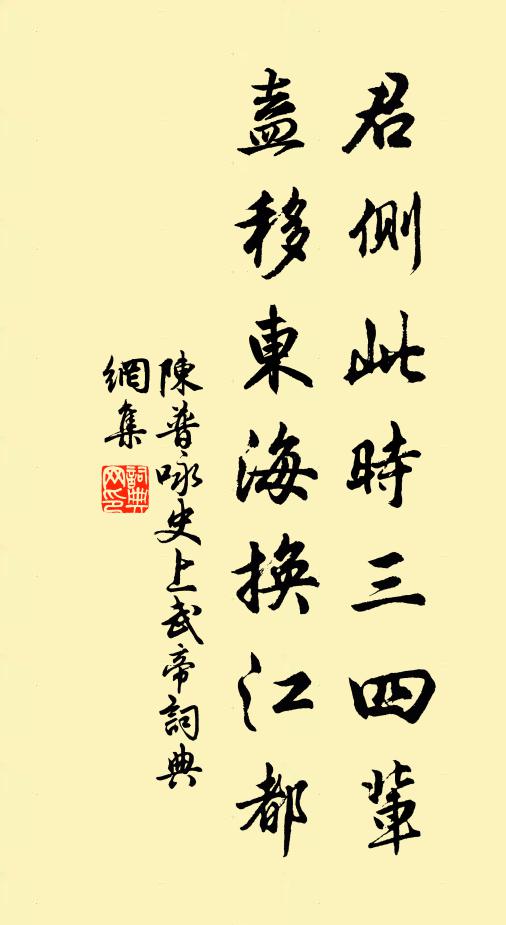 君側此時三四輩
盍移東海換江都
陳普咏史上武帝詞典
網集
詞典網印